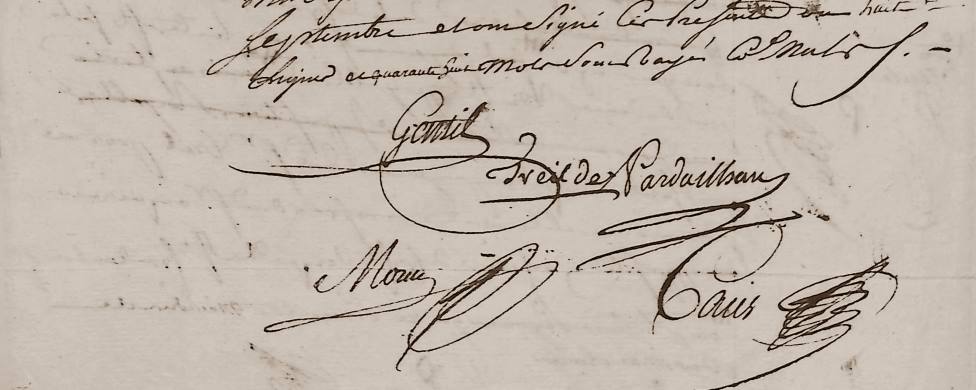 Septembre et ont Signé Ces Presentes ou huit
lignes et quarante huit Mots Sont Rayés Co.e Nuls J. -
Gentil
Treil de Pardailhan
Morin
Cauis